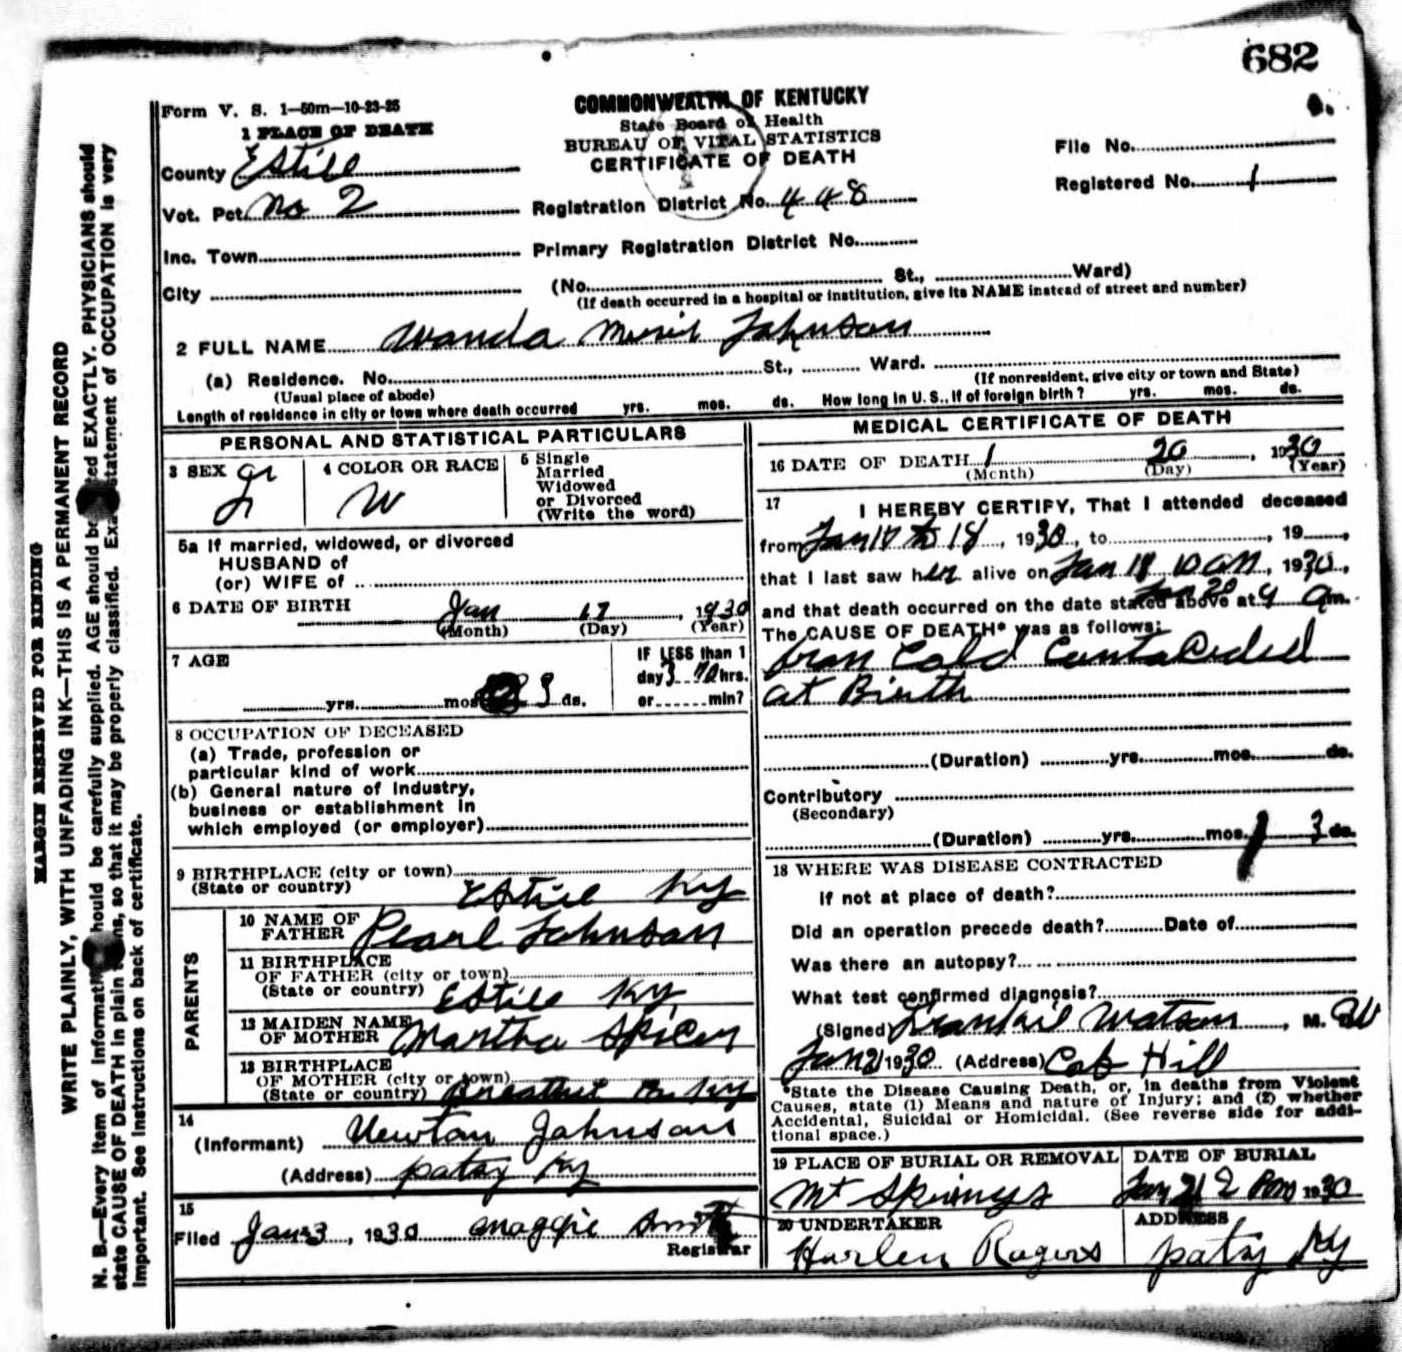 682
Form V. S. 1—50m—10-23-25
COMMONWEALTH OF KENTUCKY
State Board of Health
BUREAU OF VITAL STATISTICS
CERTIFICATE OF DEATH
1 PLACE OF DEATH
County Estill
Vot. Pct No 2
Inc. Town
City
File No.
Registered No. 1
Registration District No. 448
Primary Registration District No.
(No. St., Ward)
(If death occurred in a hospital or institution, give its NAME instead of street and number)
2 FULL NAME Wanda Johnson
(a) Residence. No. St., Ward.
(Usual place of abode)
(If nonresident, give city or town and State)
Length of residence in city or town where death occurred yrs. mos. ds. How long in U. S., if of foreign birth? yrs. mos. ds.
PERSONAL AND STATISTICAL PARTICULARS
3 SEX
4 COLOR OR RACE W
5 Single
Married
Widowed
or Divorced
(Write the word)
5a If married, widowed, or divorced
HUSBAND of
(or) WIFE of
6 DATE OF BIRTH Jan 17, 1930
(Month) (Day) (Year)
7 AGE
yrs. mos. 3 ds.
IF LESS than 1
day 3 hrs.
or min?
8 OCCUPATION OF DECEASED
(a) Trade, profession or
particular kind of work
(b) General nature of industry,
business or establishment in
which employed (or employer)
9 BIRTHPLACE (city or town)
(State or country) Estill Ky
PARENTS
10 NAME OF
FATHER Pearl Johnson
11 BIRTHPLACE
OF FATHER (city or town)
(State or country) Estill Ky
12 MAIDEN NAME
OF MOTHER Martha Spicer
13 BIRTHPLACE
OF MOTHER (city or town)
(State or country) Ky
14
(Informant) Newton Johnson
(Address) Patsy Ky
15
Filed Jan 23, 1930 Maggie Smith
Registrar
MEDICAL CERTIFICATE OF DEATH
16 DATE OF DEATH 1 20, 1930
(Month) (Day) (Year)
17 I HEREBY CERTIFY, That I attended deceased
from Jan 17 to 18, 1930, to , 19
that I last saw her alive on Jan 18 10 am, 1930,
and that death occurred on the date stated above at Jan 20 9 am.
The CAUSE OF DEATH* was as follows:
from Cold
at Birth
(Duration) yrs. mos. ds.
Contributory
(Secondary)
(Duration) yrs. mos. 3 ds.
18 WHERE WAS DISEASE CONTRACTED
If not at place of death?
Did an operation precede death? Date of
Was there an autopsy?
What test confirmed diagnosis?
(Signed) Frankie Watson, M.
Jan 21 1930 (Address) Cob Hill
*State the Disease Causing Death, or, in deaths from Violent
Causes, state (1) Means and nature of Injury; and (2) whether
Accidental, Suicidal or Homicidal. (See reverse side for addi-
tional space.)
19 PLACE OF BURIAL OR REMOVAL
Mt Springs
DATE OF BURIAL
Jan 21 2 Pm 1930
20 UNDERTAKER
Harlen Rogers
ADDRESS
Patsy Ky
MARGIN RESERVED FOR BINDING
WRITE PLAINLY, WITH UNFADING INK—THIS IS A PERMANENT RECORD
N. B.—Every item of information should be carefully supplied. AGE should be stated EXACTLY. PHYSICIANS should
state CAUSE OF DEATH in plain terms, so that it may be properly classified. Exact statement of OCCUPATION is very
important. See instructions on back of certificate.